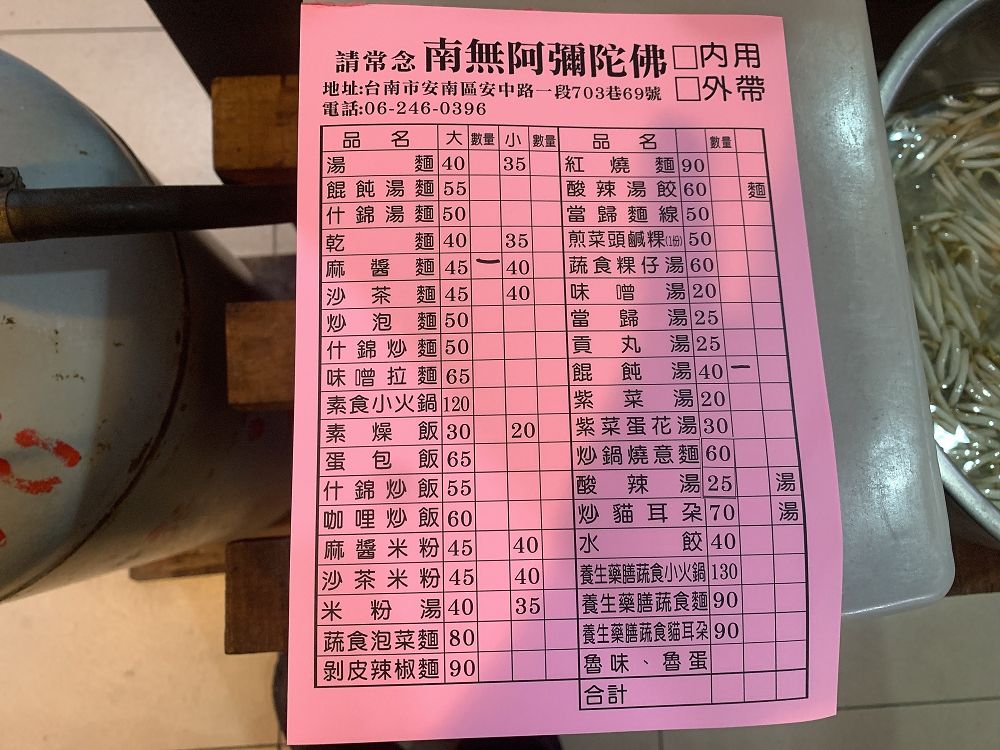 請常念 南無阿彌陀佛 □內用
地址:台南市安南區安中路一段703巷69號 □外帶
電話:06-246-0396
品名 大 數量 小 數量 品名 數量
湯麵 40 35 紅燒麵 90
餛飩湯麵 55 酸辣湯餃 60 麵
什錦湯麵 50 當歸麵線 50
乾麵 40 35 煎菜頭鹹粿(1份) 50
麻醬麵 45 一 40 蔬食粿仔湯 60
沙茶麵 45 40 味噌湯 20
炒泡麵 50 當歸湯 25
什錦炒麵 50 貢丸湯 25
味噌拉麵 65 餛飩湯 40 一
素食小火鍋 120 紫菜湯 20
素燥飯 30 20 紫菜蛋花湯 30
蛋包飯 65 炒鍋燒意麵 60
什錦炒飯 55 酸辣湯 25 湯
咖哩炒飯 60 炒貓耳朵 70 湯
麻醬米粉 45 40 水餃 40
沙茶米粉 45 40 養生藥膳蔬食小火鍋 130
米粉湯 40 35 養生藥膳蔬食麵 90
蔬食泡菜麵 80 養生藥膳蔬食貓耳朵 90
剝皮辣椒麵 90 魯味、魯蛋
合計